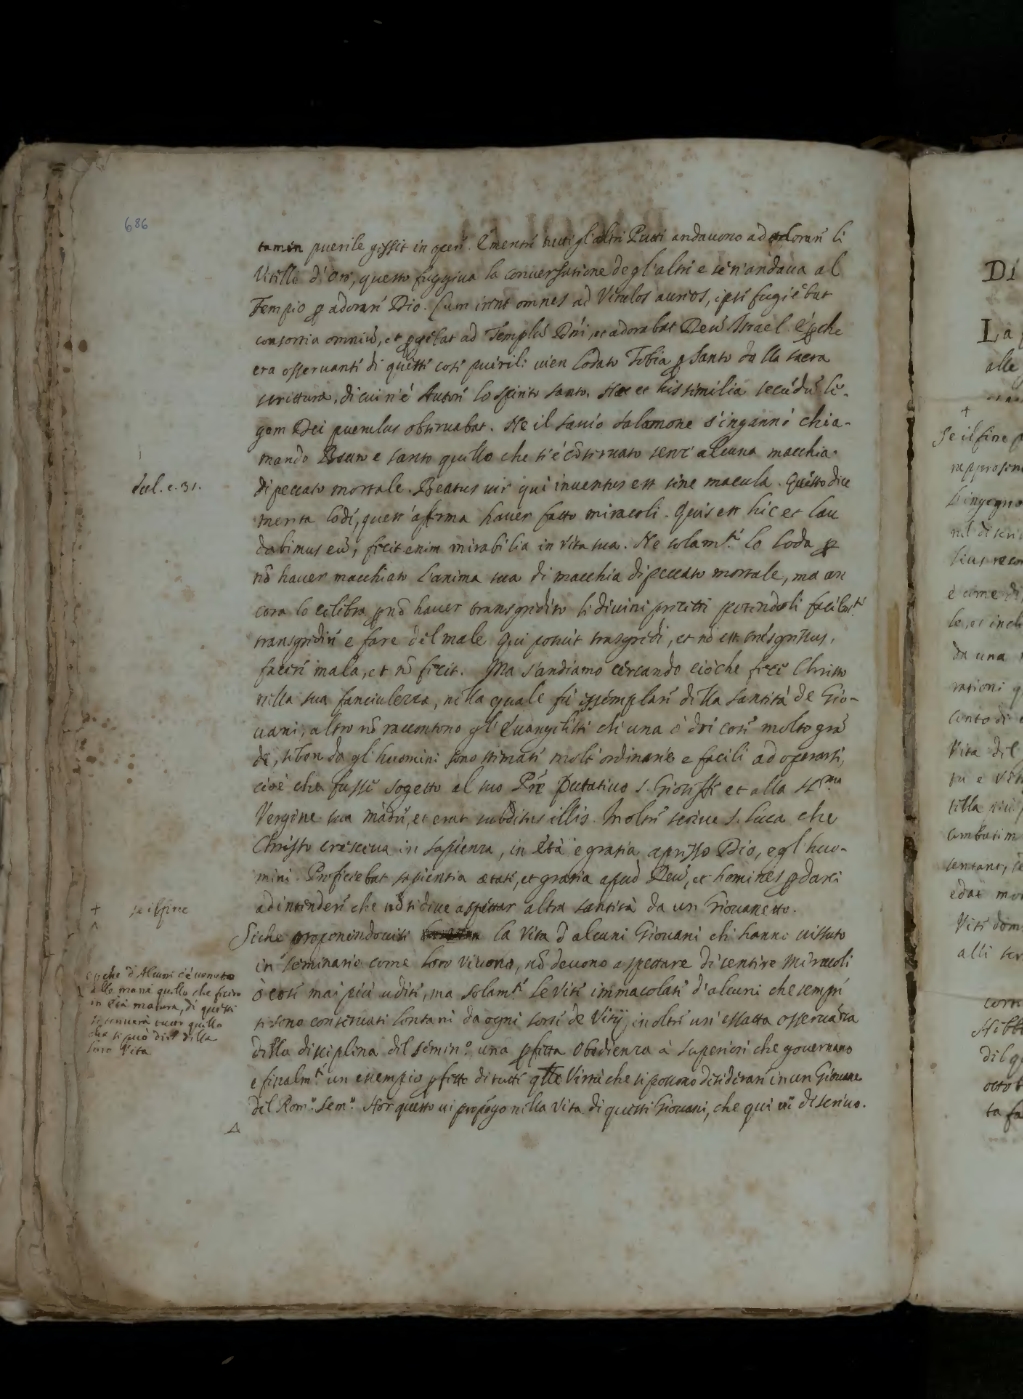 686
tamen puerile gessit in opere. E mentre tutti gl'altri Putti andauono ad adorare li
Vitelli d'oro, questo fuggiua la conuersatione degl'altri e se n'andaua al
Tempio p adorare Dio. Cum irent omnes ad Vitulos aureos, ipse fugiebat
consortia omniū, et pgebat ad Templū Dni, et adorabat Deū Israel. E pche
era osseruante di queste cose puerili uien lodato Tobia p Santo dalla sacra
scrittura, di cui n'è Autore lo spirito santo. Haec et his similia secūdū le-
gem Dei puerulus obseruabat. Ne il sauio Salomone s'ingannò chia-
mando Beato e santo quello che s'è cōseruato senz'alcuna macchia
Eccl. c. 31.
di peccato mortale. Beatus uir qui inuentus est sine macula. Questo dice
merita lodi, quest'afferma hauer fatto miracoli. Quis est hic et lau
dabimus eū, fecit enim mirabilia in vita sua. Ne solamte lo loda p
nō hauer macchiato l'anima sua di macchia di peccato mortale, ma an
cora lo celebra p nō hauer transgredito li diuini precetti potendoli facilmte
transgredire e fare del male. Qui potuit trasgredi, et nō est trasgressus,
facere mala, et nō fecit. Ma s'andiamo cercando ciò che fece Christo
nella sua fanciulezza, nella quale fù essemplare della santità de Gio-
uani, altro nō raccontono gl'Euangelisti che una ò doi cose molto grā
de, sebon da gl'huomini sono stimate molt'ordinarie e facili ad operarsi,
cioè che fusse sogetto al suo Pre Putatiuo S. Gioseffe et alla SSma
Vergine sua madre, et erat subditus illis. Inoltre scriue S. Luca che
Christo cresceua in sapienza, in età e gratia apresso Dio, e gl'huo-
mini. Proficiebat sapientia aetate, et gratia apud Deū, et homines p darci
ad intendere che nō si deue aspettar altra santità da un Giouanetto.
+ se il fine
Siche proponendouisi la Vita d'alcuni Giouani che hanno uissuto
in seminario come loro viuono, nō deuono aspettare di sentire miracoli
ò cose mai più udite, ma solamte le Vite immacolate d'alcuni che sempre
si sono conseruati lontani da ogni sorte de Vitij, inoltre un'essatta osseruāza
della disciplina del semino una pfetta Obedienza à superiori che gouernano
e finalmte un esempio pfetto di tutte qlle Virtù che si possono desiderare in un Giouane
del Romo Semo. Hor questo ui propōgo nella Vita di questi Giouani, che qui ui descriuo.
e che d'Alcuni è uenuto
alle mani quello che fecero
in età matura, di questi
s'accennerà ancor quello
che si può dire della
loro Vita
Di
La
alle
+
Se il fine
L'ingegno
è come di
da una
Vita del